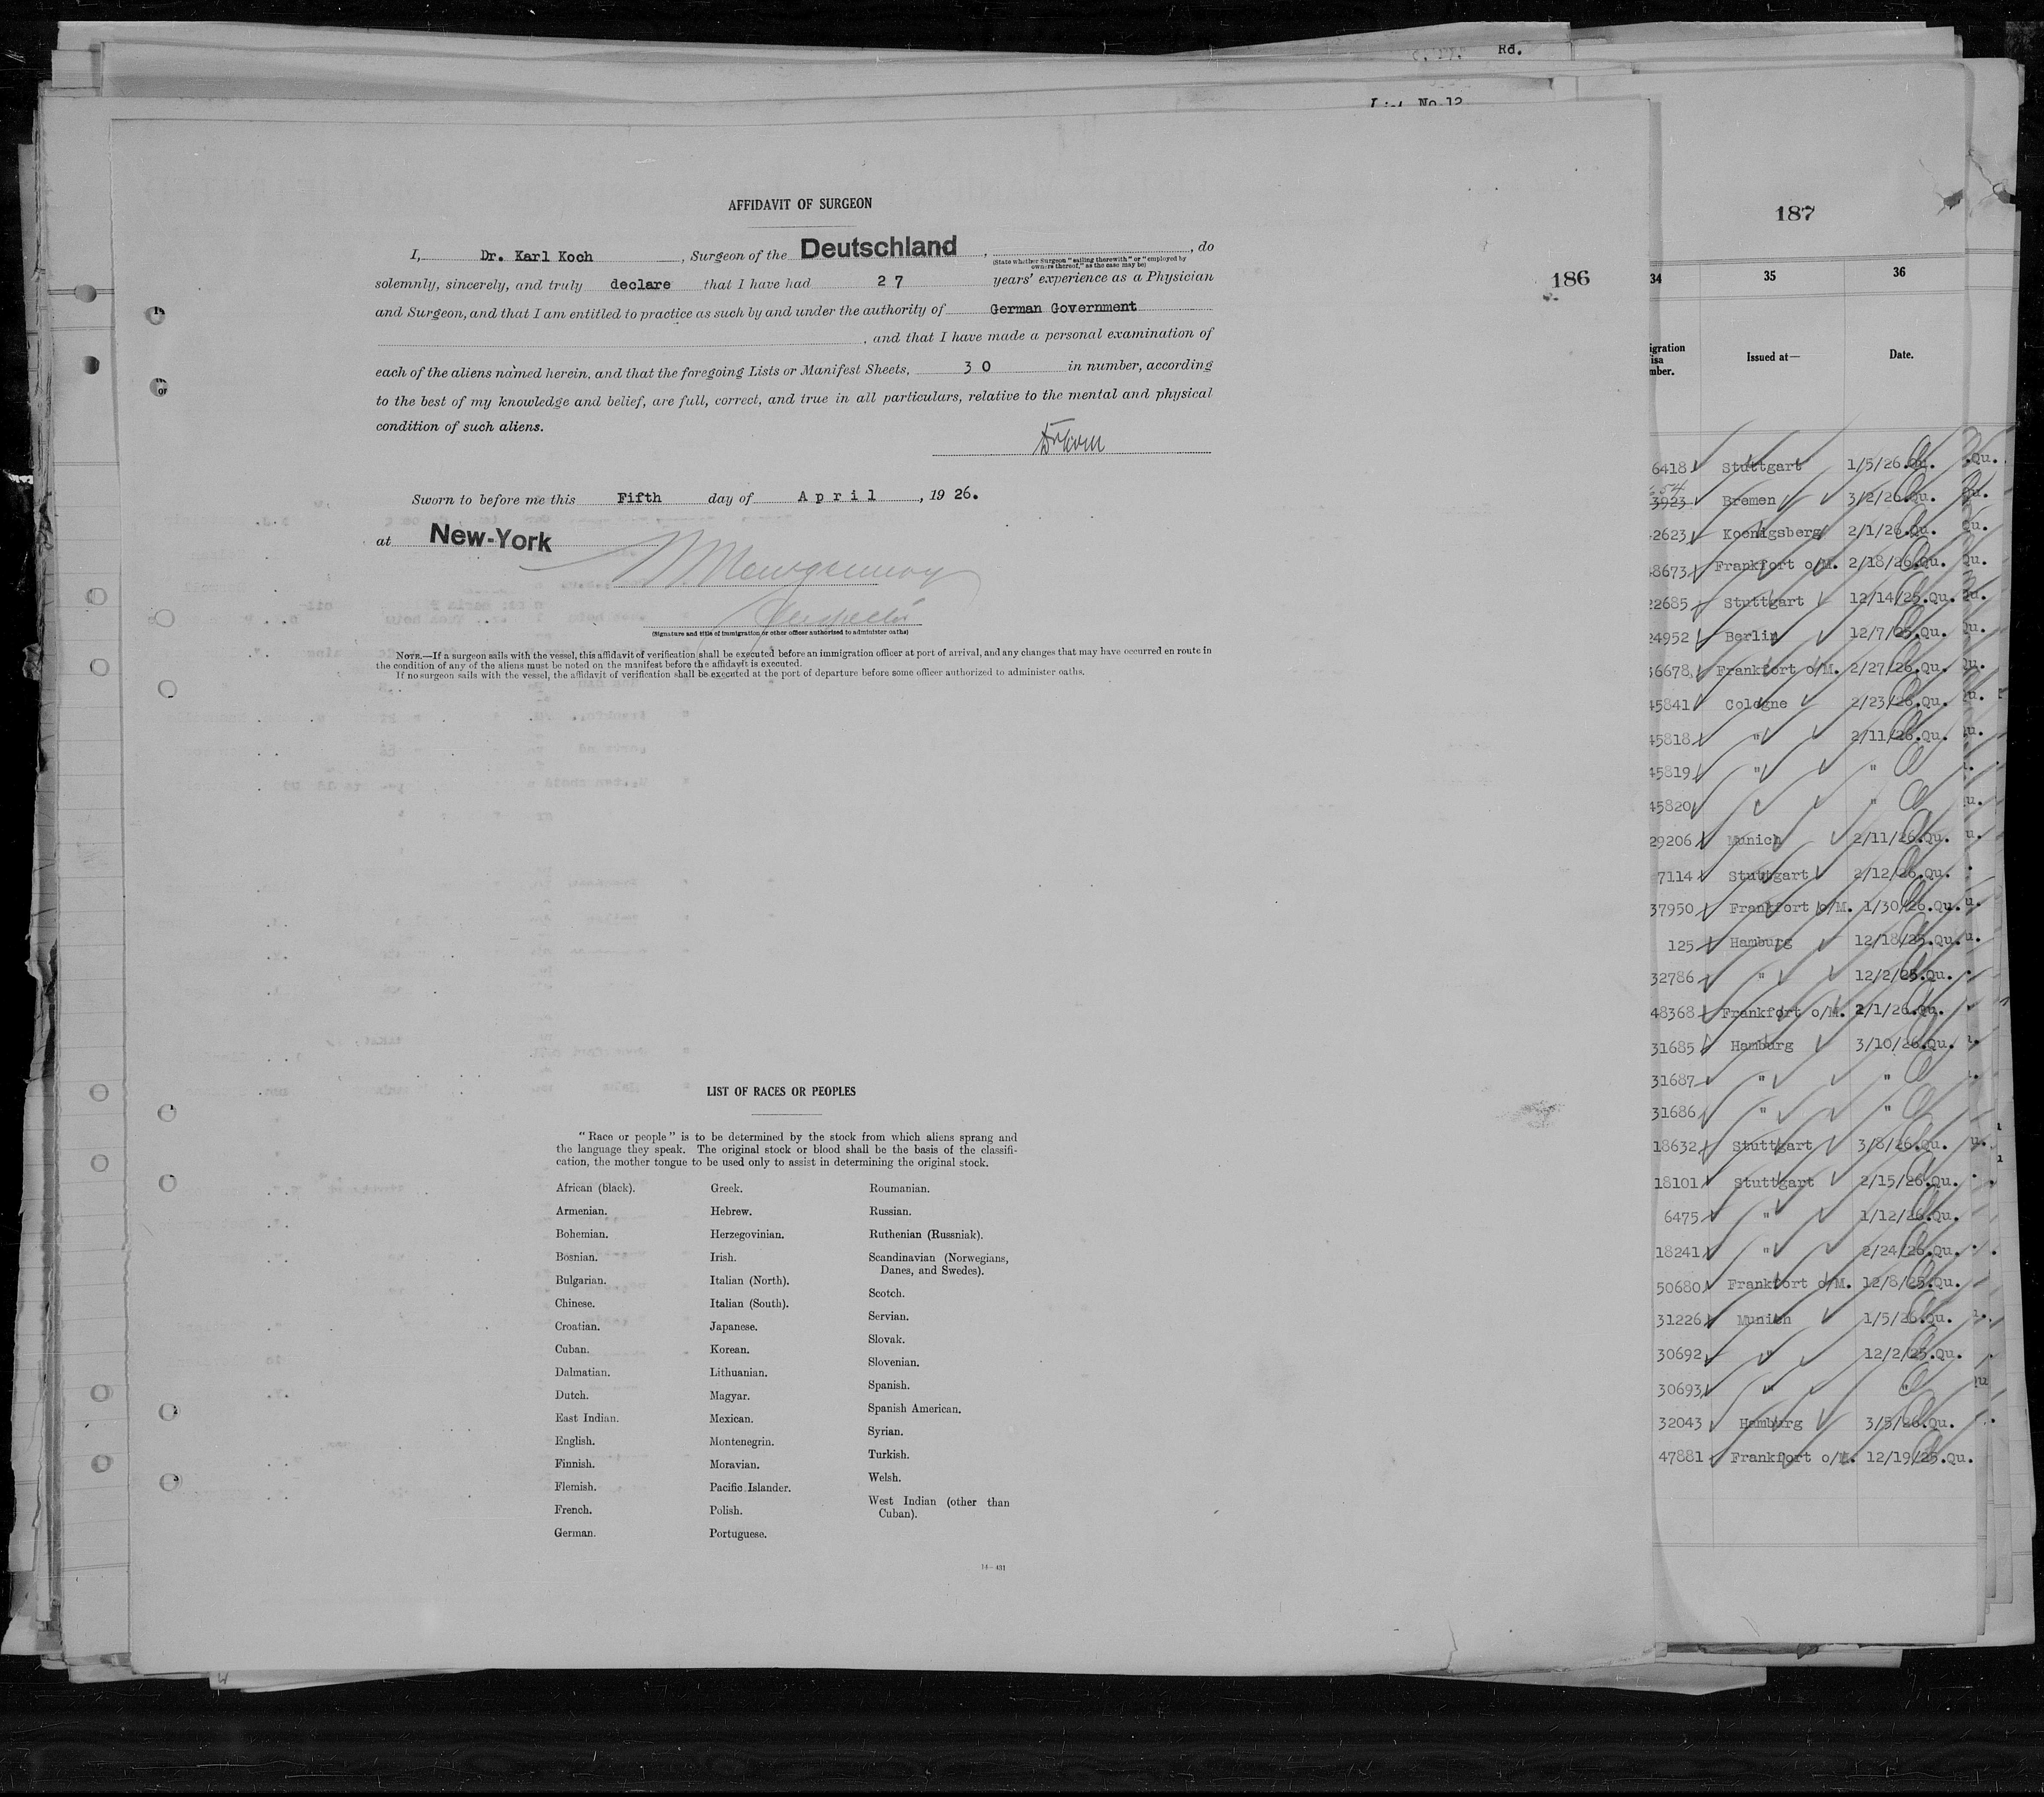 Rd.
List No.12
AFFIDAVIT OF SURGEON
I, Dr. Karl Koch, Surgeon of the Deutschland, , do
(State whether Surgeon "sailing therewith" or "employed by
owners thereof," as the case may be)
solemnly, sincerely, and truly declare that I have had 27 years' experience as a Physician
and Surgeon, and that I am entitled to practice as such by and under the authority of German Government
, and that I have made a personal examination of
each of the aliens named herein, and that the foregoing Lists or Manifest Sheets, 30 in number, according
to the best of my knowledge and belief, are full, correct, and true in all particulars, relative to the mental and physical
condition of such aliens.
Sworn to before me this Fifth day of April, 1926.
at New-York
Inspector
(Signature and title of immigration or other officer authorized to administer oaths)
NOTE.—If a surgeon sails with the vessel, this affidavit of verification shall be executed before an immigration officer at port of arrival, and any changes that may have occurred en route in
the condition of any of the aliens must be noted on the manifest before the affidavit is executed.
If no surgeon sails with the vessel, the affidavit of verification shall be executed at the port of departure before some officer authorized to administer oaths.
186
LIST OF RACES OR PEOPLES
"Race or people" is to be determined by the stock from which aliens sprang and
the language they speak. The original stock or blood shall be the basis of the classifi-
cation, the mother tongue to be used only to assist in determining the original stock.
African (black).
Armenian.
Bohemian.
Bosnian.
Bulgarian.
Chinese.
Croatian.
Cuban.
Dalmatian.
Dutch.
East Indian.
English.
Finnish.
Flemish.
French.
German.
Greek.
Hebrew.
Herzegovinian.
Irish.
Italian (North).
Italian (South).
Japanese.
Korean.
Lithuanian.
Magyar.
Mexican.
Montenegrin.
Moravian.
Pacific Islander.
Polish.
Portuguese.
Roumanian.
Russian.
Ruthenian (Russniak).
Scandinavian (Norwegians,
Danes, and Swedes).
Scotch.
Servian.
Slovak.
Slovenian.
Spanish.
Spanish American.
Syrian.
Turkish.
Welsh.
West Indian (other than
Cuban).
14—431
187
34 35 36
igration
isa
mber.
Issued at—
Date.
6418 Stuttgart 1/5/26.Qu.
3923 Bremen 3/2/26.Qu.
2623 Koenigsberg 2/1/26.Qu.
48673 Frankfort o/M. 2/18/26.Qu.
22685 Stuttgart 12/14/25.Qu.
24952 Berlin 12/7/25.Qu.
36678 Frankfort o/M. 2/27/26.Qu.
45841 Cologne 2/23/26.Qu.
45818 " 2/11/26.Qu.
45819 " "
45820 "
29206 Munich 2/11/26.Qu.
7114 Stuttgart 2/12/26.Qu.
37950 Frankfort o/M. 1/30/26.Qu.
125 Hamburg 12/18/25.Qu.
32786 " 12/2/25.Qu.
48368 Frankfort o/M. 2/1/26.Qu.
31685 Hamburg 3/10/26.Qu.
31687 " "
31686 " "
18632 Stuttgart 3/8/26.Qu.
18101 Stuttgart 2/15/26.Qu.
6475 " 1/12/26.Qu.
18241 " 2/24/26.Qu.
50680 Frankfort o/M. 12/8/25.Qu.
31226 Munich 1/5/26.Qu.
30692 " 12/2/25.Qu.
30693 " "
32043 Hamburg 3/5/26.Qu.
47881 Frankfort o/M. 12/19/25.Qu.